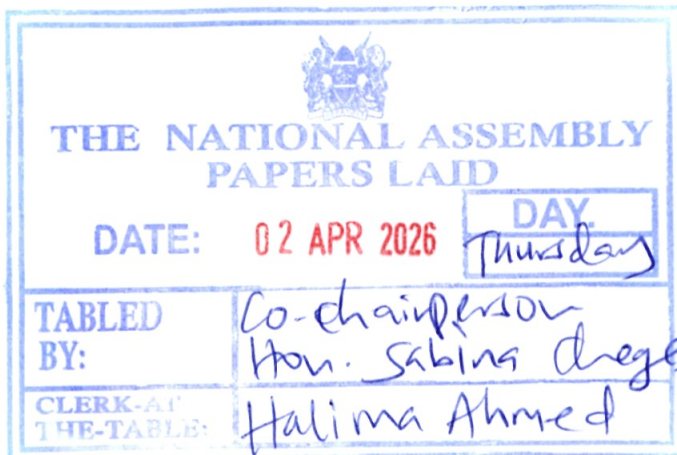 THE NATIONAL ASSEMBLY
PAPERS LAID
DATE: 02 APR 2026
DAY.
Thursday
TABLED BY:
Co-chairperson
Hon. Sabina Chege
CLERK-AT
THE-TABLE:
Halima Ahmed